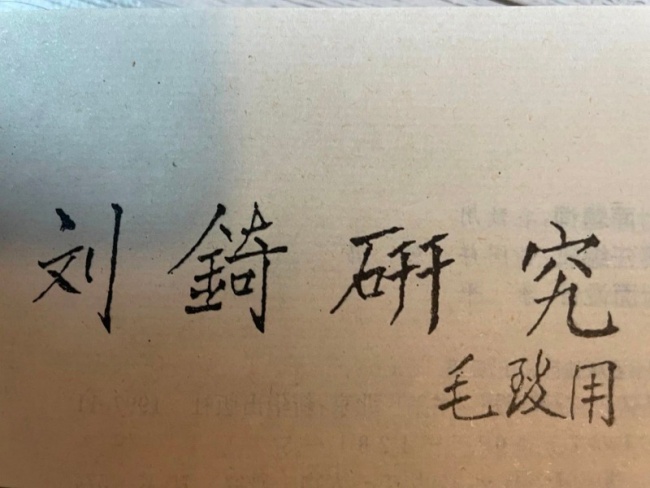 刘錡研究
毛毅用